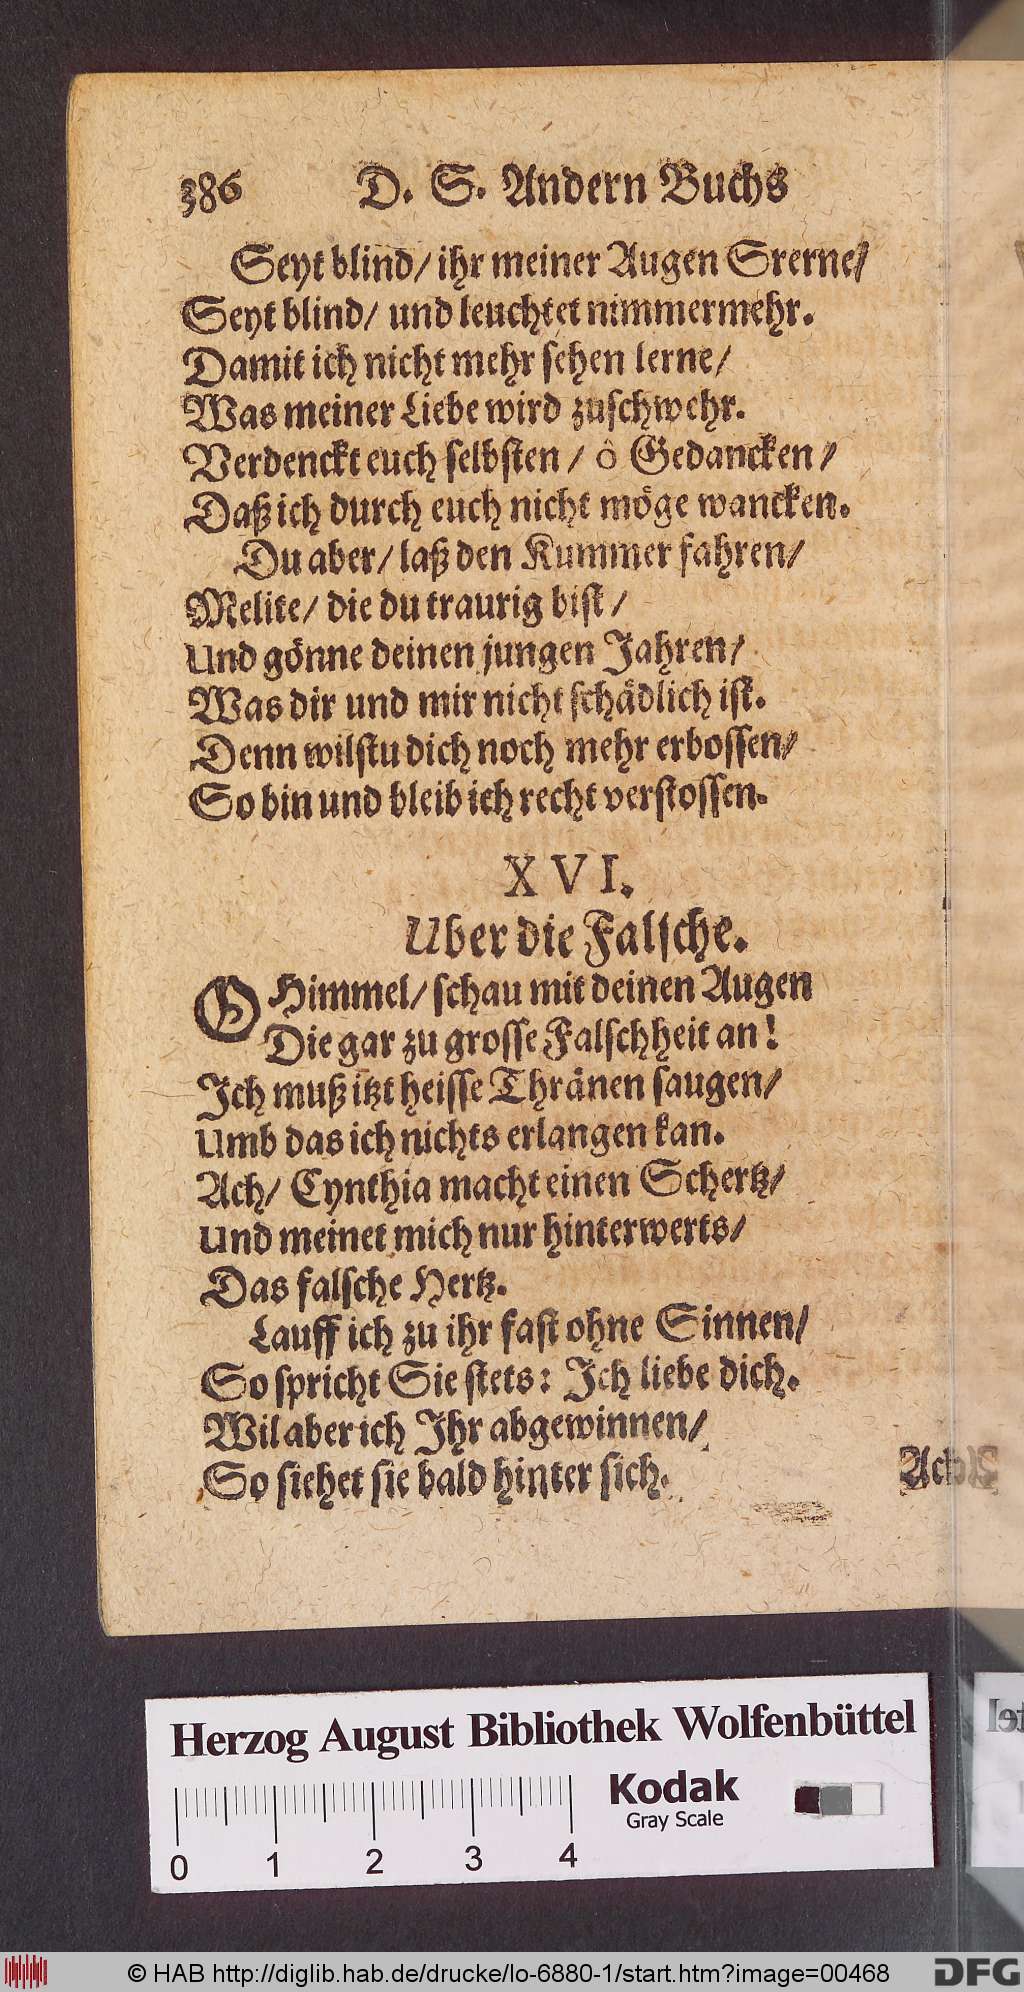 386 D. S. Andern Buchs
Seyt blind/ ihr meiner Augen Srerne/
Seyt blind/ und leuchtet nimmermehr.
Damit ich nicht mehr sehen lerne/
Was meiner Liebe wird zuschwehr.
Verdenckt euch selbsten / ô Gedancken/
Daß ich durch euch nicht möge wancken.
Du aber/ laß den Kummer fahren/
Melite/ die du traurig bist/
Und gönne deinen jungen Jahren/
Was dir und mir nicht schädlich ist.
Denn wilstu dich noch mehr erbossen/
So bin und bleib ich recht verstossen.
XVI.
Uber die Falsche.
O Himmel/ schau mit deinen Augen
Die gar zu grosse Falschheit an!
Ich muß itzt heisse Thränen saugen/
Umb das ich nichts erlangen kan.
Ach/ Cynthia macht einen Schertz/
Und meinet mich nur hinterwerts/
Das falsche Hertz.
Lauff ich zu ihr fast ohne Sinnen/
So spricht Sie stets: Ich liebe dich.
Wil aber ich Ihr abgewinnen/
So siehet sie bald hinter sich.
Ach
Herzog August Bibliothek Wolfenbüttel
Kodak
Gray Scale
0 1 2 3 4
© HAB http://diglib.hab.de/drucke/lo-6880-1/start.htm?image=00468
DFG